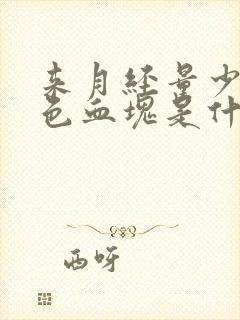 来月经量少
色血塊是什
西呀